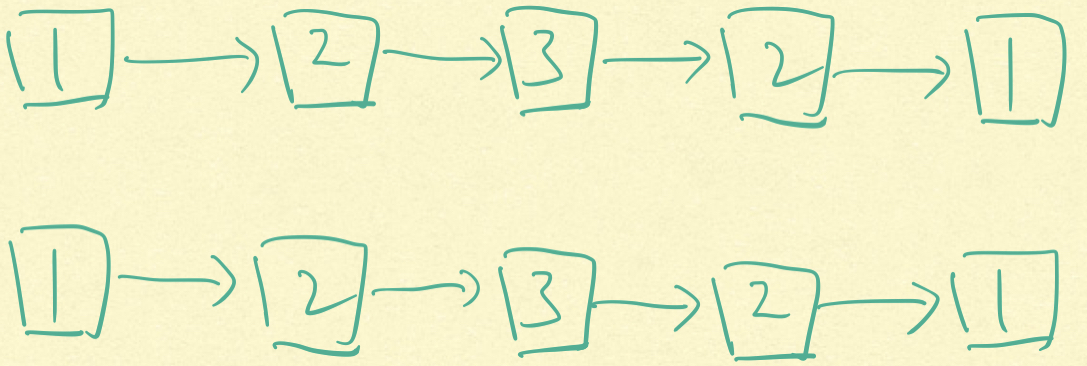 1 → 2 → 3 → 2 → 1
1 → 2 → 3 → 2 → 1